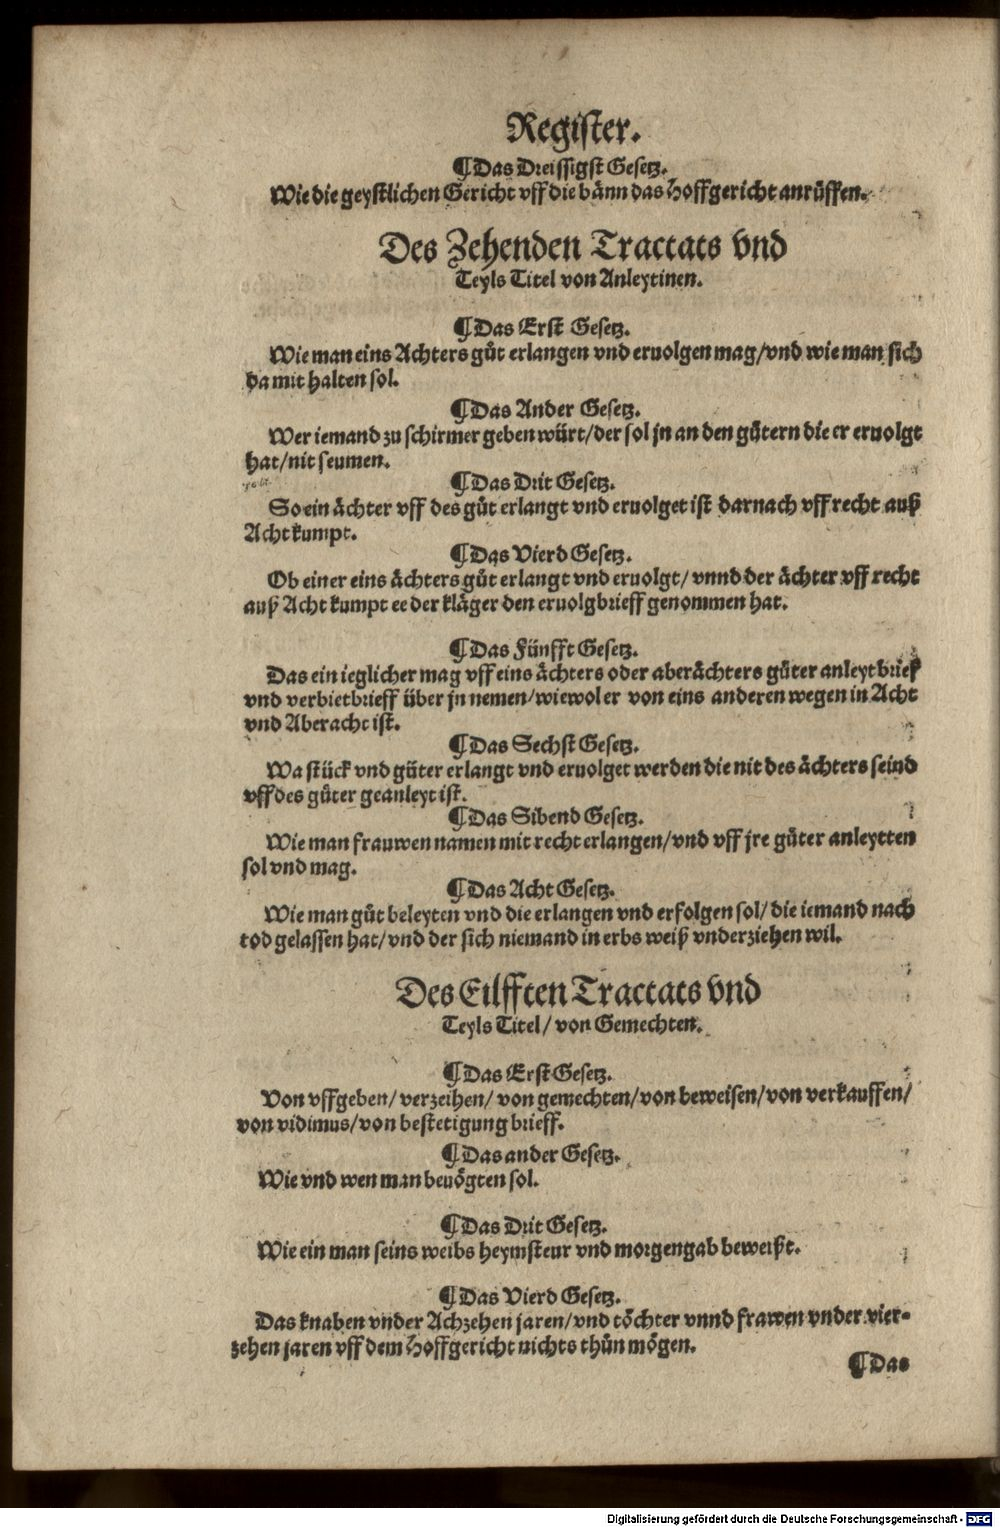 Register.
¶Das Dreissigst Gesetz.
Wie die geystlichen Gericht vff die bänn das Hoffgericht anrüffen.
Des Zehenden Tractats vnd
Teyls Titel von Anleytinen.
¶Das Erst Gesetz.
Wie man eins Achters güt erlangen vnd eruolgen mag/vnd wie man sich
da mit halten sol.
¶Das Ander Gesetz.
Wer iemand zu schirmer geben würt/der sol jn an den gütern die er eruolgt
hat/nit seumen.
¶Das Drit Gesetz.
So ein ächter vff des güt erlangt vnd eruolget ist darnach vff recht auß
Acht kumpt.
¶Das Vierd Gesetz.
Ob einer eins ächters güt erlangt vnd eruolgt/ vnnd der ächter vff recht
auß Acht kumpt ee der kläger den eruolgbrieff genommen hat.
¶Das Fünfft Gesetz.
Das ein ieglicher mag vff eins ächters oder aberächters güter anleyt brief
vnd verbietbrieff über jn nemen/wiewol er von eins anderen wegen in Acht
vnd Aberacht ist.
¶Das Sechst Gesetz.
Wa stück vnd güter erlangt vnd eruolget werden die nit des ächters seind
vff des güter geanleyt ist.
¶Das Sibend Gesetz.
Wie man frauwen namen mit recht erlangen/vnd vff jre güter anleytten
sol vnd mag.
¶Das Acht Gesetz.
Wie man güt beleyten vnd die erlangen vnd erfolgen sol/ die iemand nach
tod gelassen hat/vnd der sich niemand in erbs weiß vnderziehen wil.
Des Eilfften Tractats vnd
Teyls Titel/ von Gemechten.
¶Das Erst Gesetz.
Von vffgeben/ verzeihen/ von gemechten/von beweisen/von verkauffen/
von vidimus/von bestetigung brieff.
¶Das ander Gesetz.
Wie vnd wen man beuögten sol.
¶Das Drit Gesetz.
Wie ein man seins weibs heymsteur vnd morgengab beweißt.
¶Das Vierd Gesetz.
Das knaben vnder Achzehen jaren/vnd töchter vnnd frawen vnder vier-
zehen jaren vff dem Hoffgericht nichts thün mögen.
¶Das
Digitalisierung gefördert durch die Deutsche Forschungsgemeinschaft - DFG